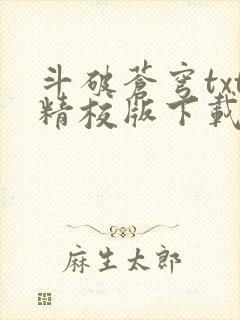 斗破蒼穹txt
精校版下載
麻生太郎